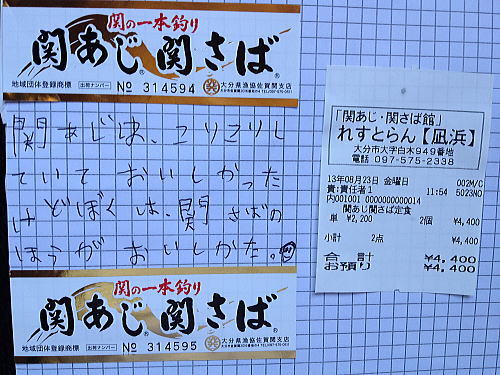 関の一本釣り
関あじ®関さば®
地域団体登録商標 出荷ナンバー № 314594 大分県漁協佐賀関支店
関あじは、コリコリし
ていておいしかった
けどぼくは、関さばの
ほうがおいしかた。
関の一本釣り
関あじ®関さば®
地域団体登録商標 出荷ナンバー № 314595 大分県漁協佐賀関支店
「関あじ・関さば館」
れすとらん【凪浜】
大分市大字白木949番地
電話 097-575-2338
13年08月23日 金曜日 002M/C
責:責任者1 11:54 5023NO
内001001 0000000000014
関あじ関さば定食
単 ¥2,200 2個 ¥4,400
小計 2点 ¥4,400
合計 ¥4,400
お預り ¥4,400